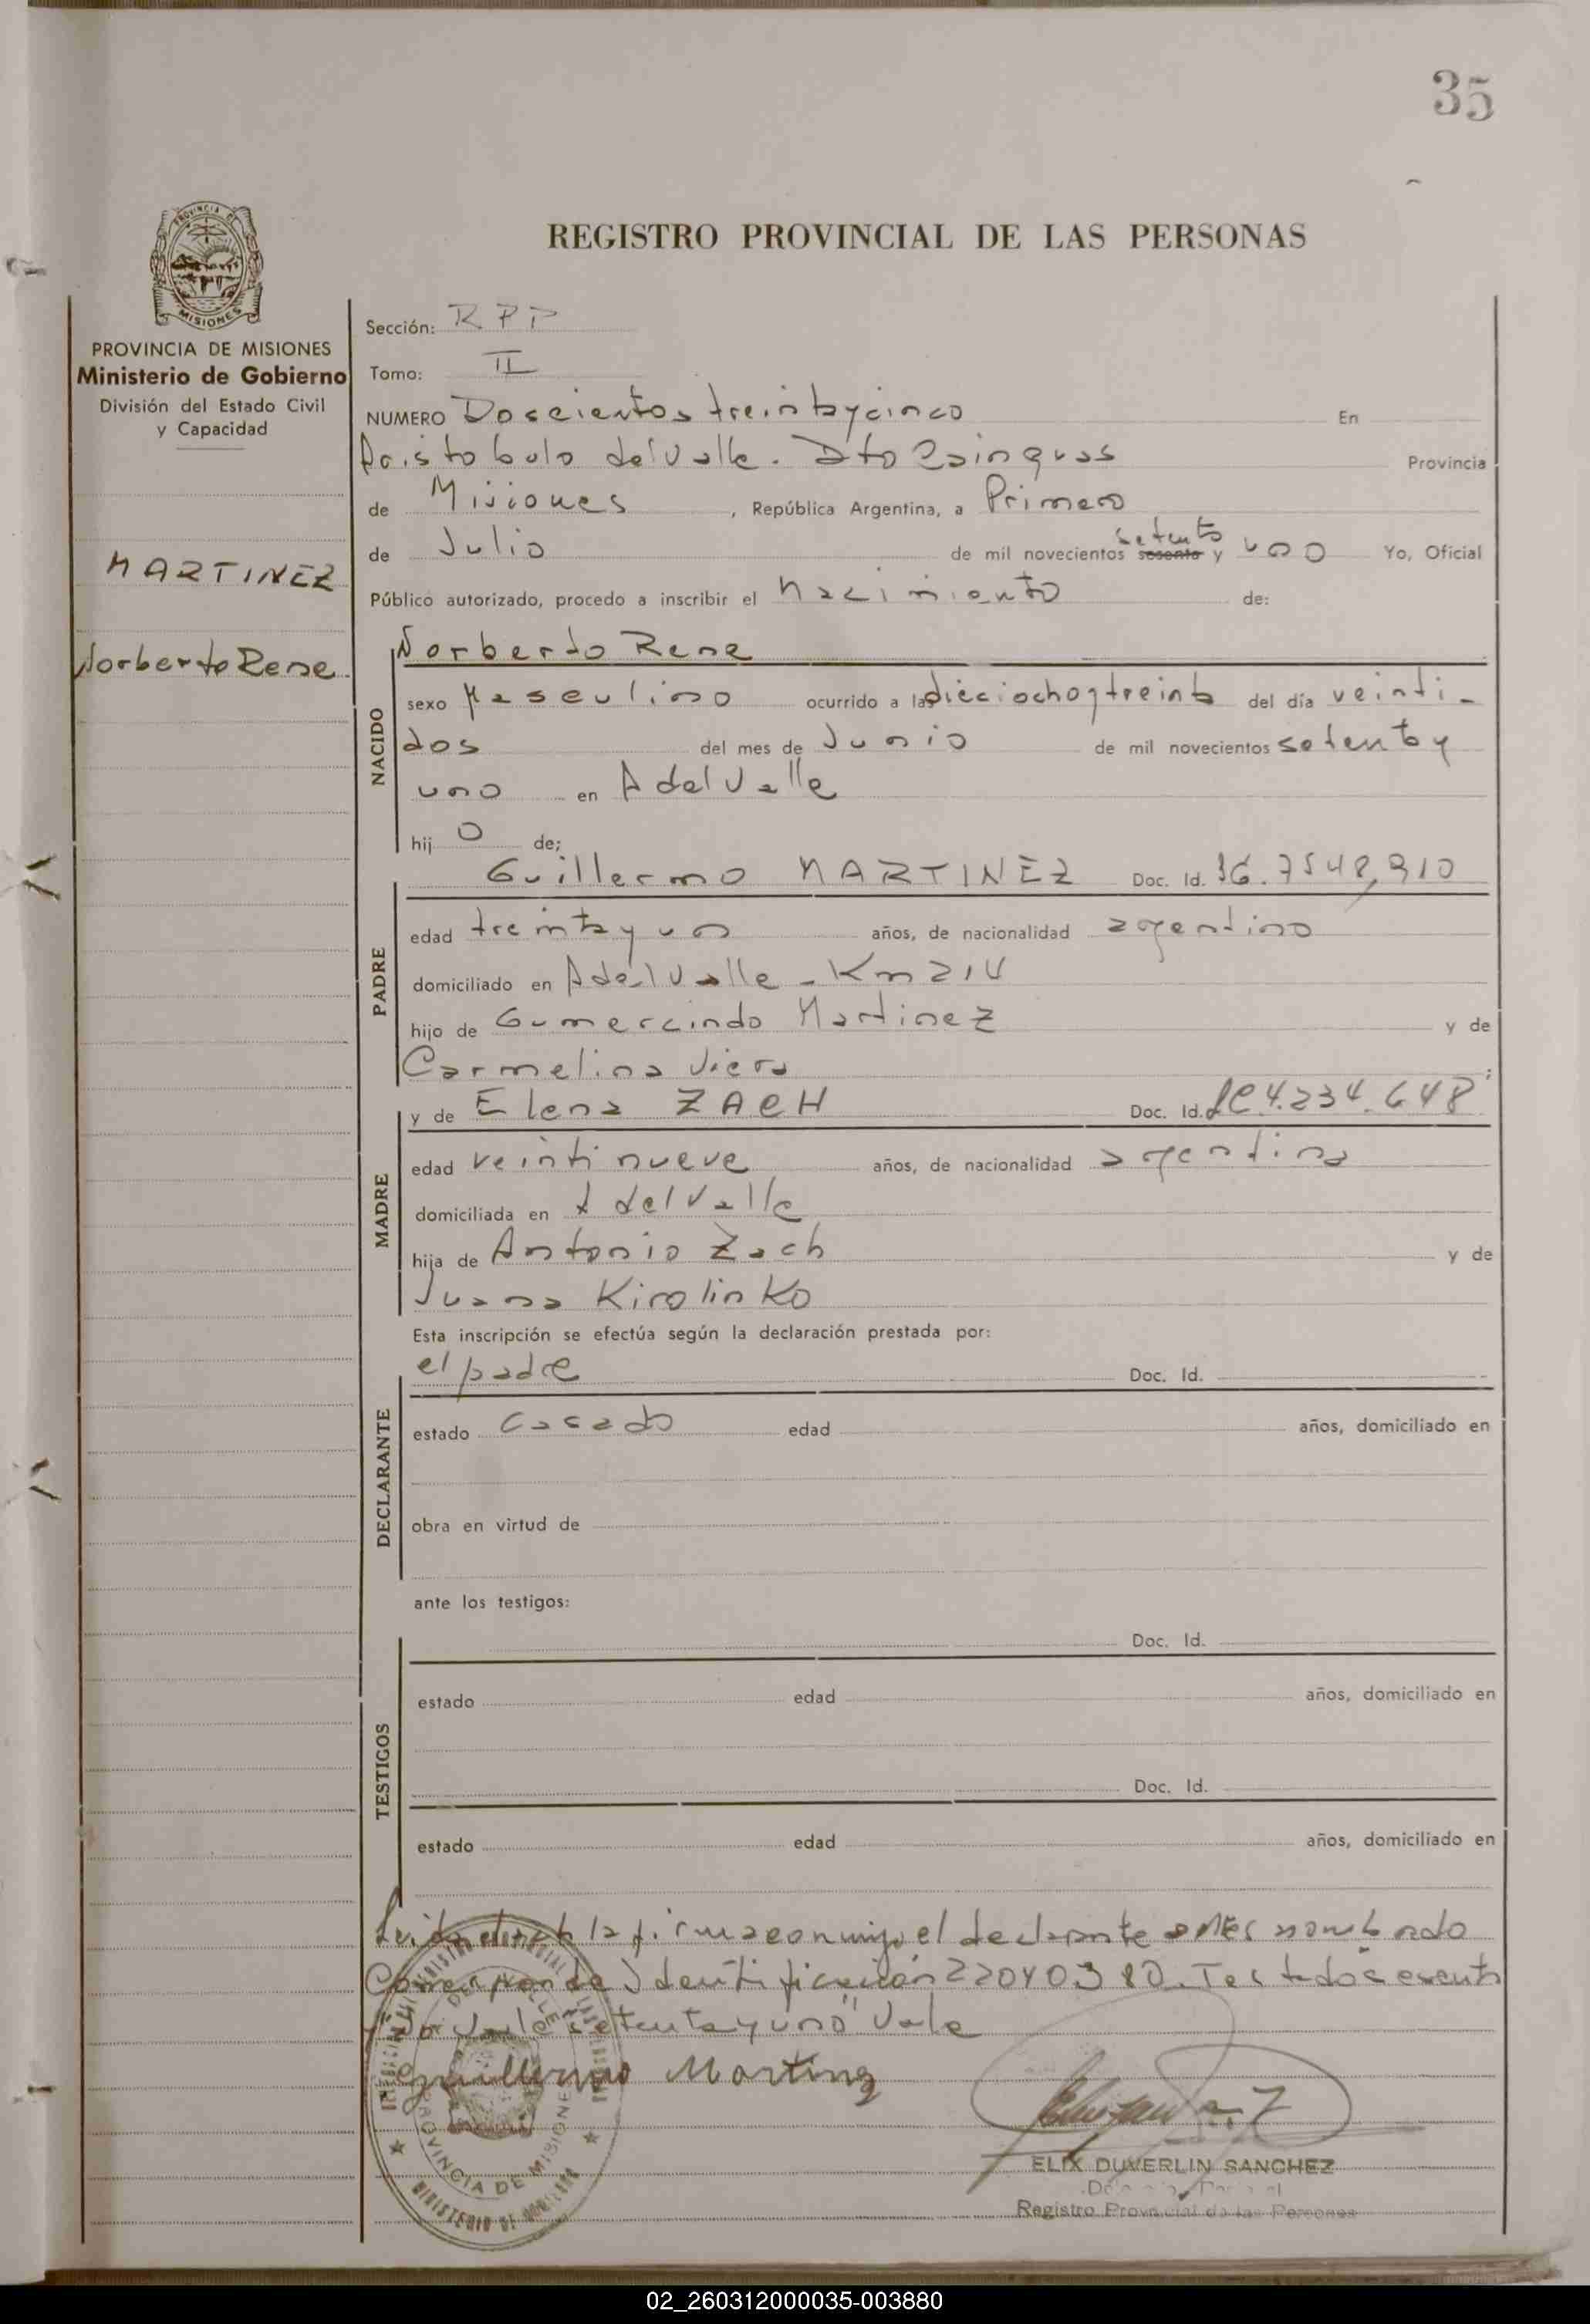 35
REGISTRO PROVINCIAL DE LAS PERSONAS
PROVINCIA DE MISIONES
Ministerio de Gobierno
División del Estado Civil
y Capacidad
MARTINEZ
Norberto Rene
Sección: RPP
Tomo: II
NUMERO Doscientos treintaycinco En
Aristobulo delValle. Dto Cainguas Provincia
de Misiones, República Argentina, a Primero
de Julio de mil novecientos setenta sesenta y uno Yo, Oficial
Público autorizado, procedo a inscribir el nacimiento de:
NACIDO
Norberto Rene
sexo Masculino ocurrido a las dieciochoytreinta del día veinti-
dos del mes de Junio de mil novecientos setentay
uno en AdelValle
hijo de;
PADRE
Guillermo MARTINEZ Doc. Id.
edad treintayun años, de nacionalidad argentino
domiciliado en AdelValle - Km 214
hijo de Gumercindo Martinez y de
Carmelina Viera
MADRE
y de Elena ZACH Doc. Id. LC 4.234.648
edad veintinueve años, de nacionalidad argentina
domiciliada en A delValle
hija de Antonio Zach y de
Juana Kirolinko
Esta inscripción se efectúa según la declaración prestada por:
DECLARANTE
el padre Doc. Id.
estado casado edad años, domiciliado en
obra en virtud de
ante los testigos:
TESTIGOS
Doc. Id.
estado edad años, domiciliado en
Doc. Id.
estado edad años, domiciliado en
Leida el acta la firma conmigo el declarante antes nombrado
Corresponde Identificación 22040380. Testado sesenta
setentayuno" Vale
Guillermo Martinez
PROVINCIA DE MISIONES
MINISTERIO DE GOBIERNO
ELIX DUVERLIN SANCHEZ
Registro Provincial de las Personas
02_260312000035-003880